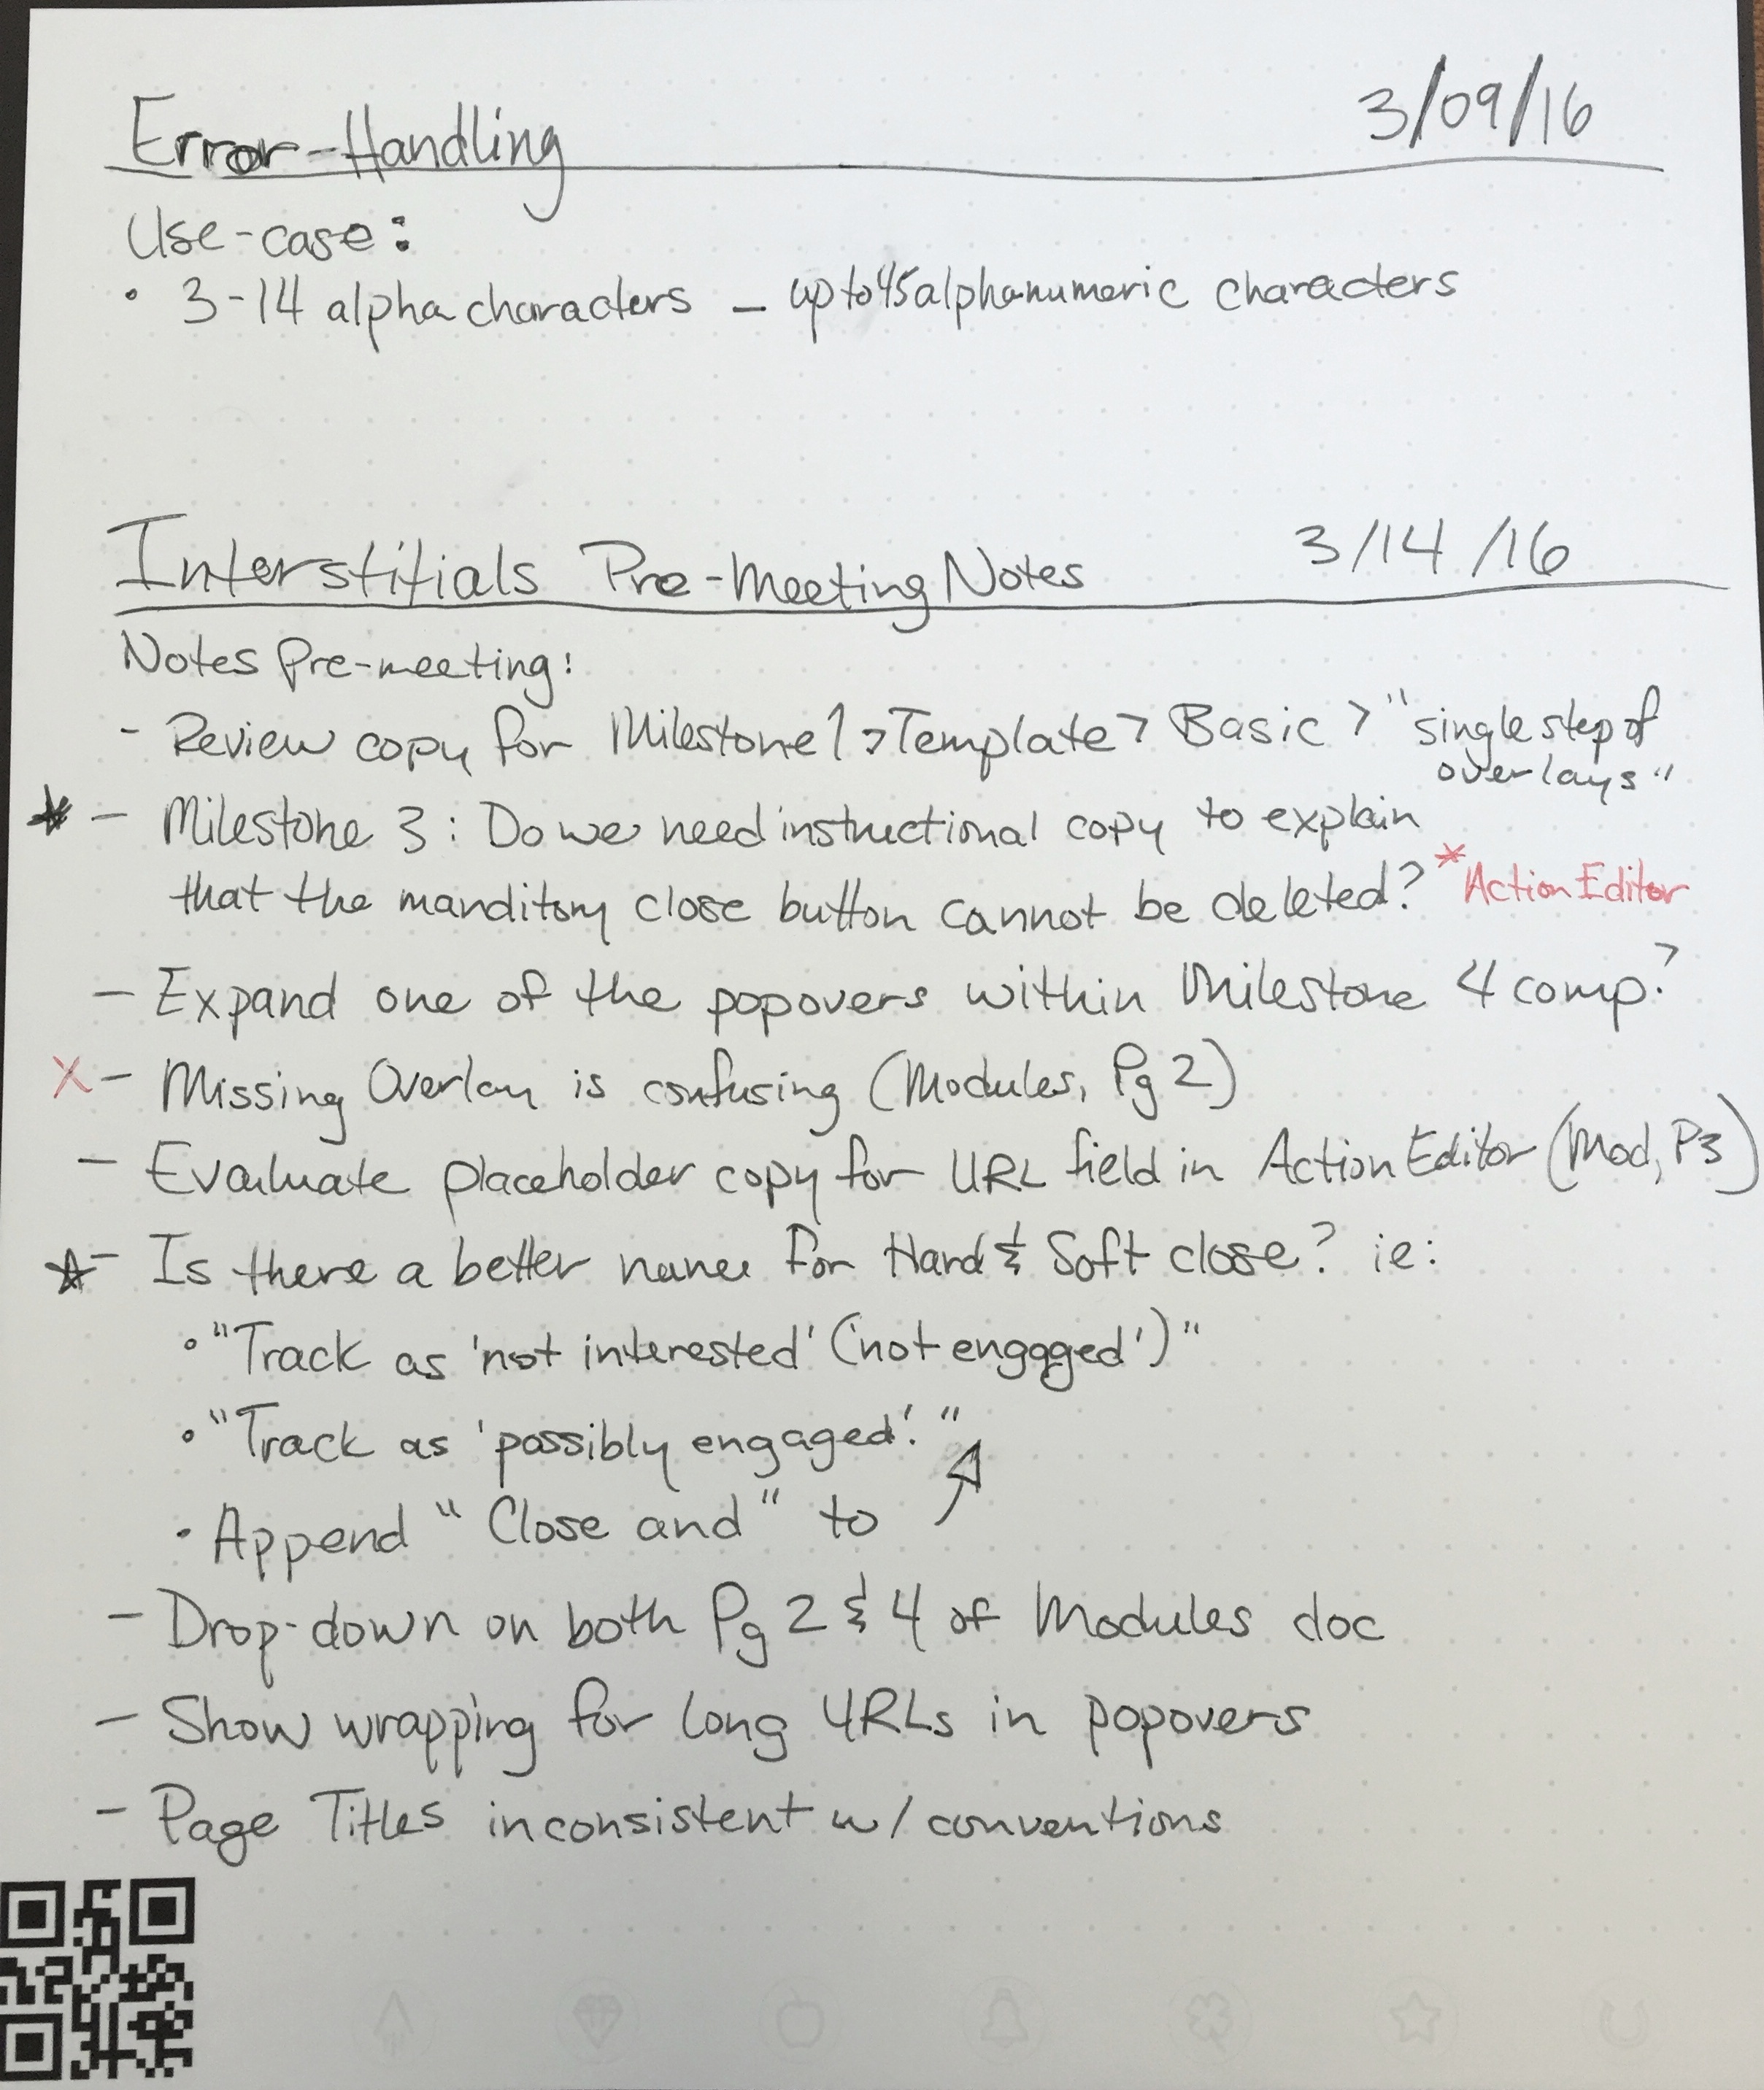 Error-Handling 3/09/16
Use-case:
• 3-14 alpha characters – up to 45 alphanumeric characters
Interstitials Pre-Meeting Notes 3/14/16
Notes Pre-meeting:
- Review copy for Milestone 1 > Template > Basic > "single step of
overlays"
* - Milestone 3: Do we need instructional copy to explain
that the manditory close button cannot be deleted? *Action Editor
- Expand one of the popovers within Milestone 4 comp?
X - Missing Overlay is confusing (Modules, Pg 2)
- Evaluate placeholder copy for URL field in Action Editor (Mod, P3)
☆ - Is there a better name for Hard & Soft close? ie:
• "Track as 'not interested' ('not engaged')"
• "Track as 'possibly engaged'."
• Append "Close and" to ↗
- Drop-down on both Pg 2 & 4 of Modules doc
- Show wrapping for long URLs in popovers
- Page Titles inconsistent w/ conventions